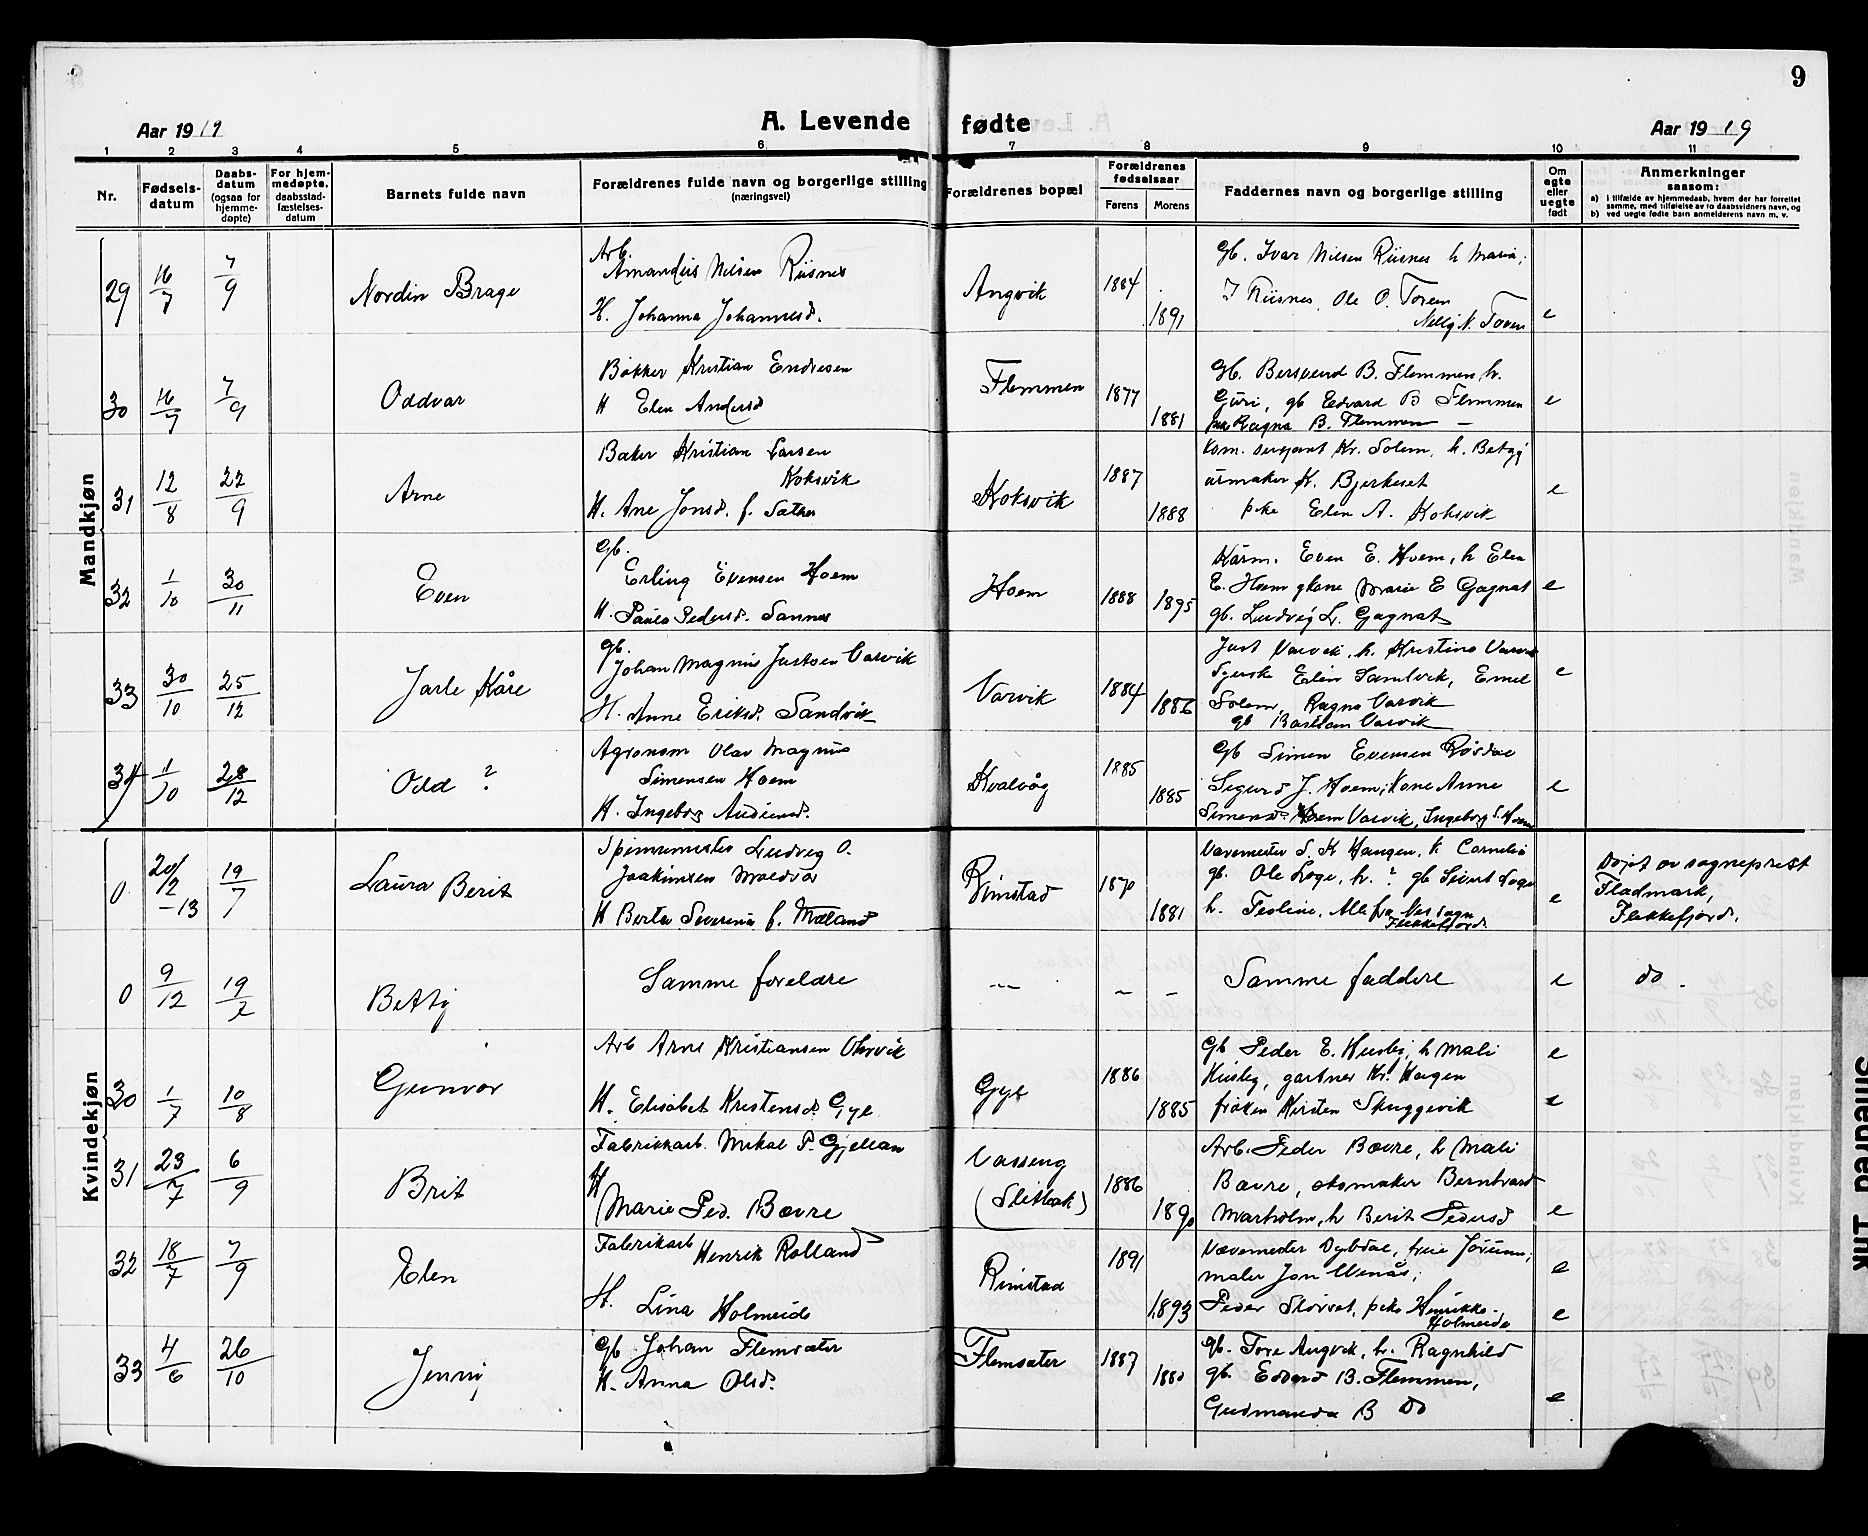 9
Aar 1919
A. Levende fødte
Aar 1919
1 2 3 4 5 6 7 8 9 10 11
Nr.
Fødsels-
datum
Daabs-
datum
(ogsaa for
hjemme-
døpte)
For hjem-
medøpte,
daabsstad-
fæstelses-
datum
Barnets fulde navn
Forældrenes fulde navn og borgerlige stilling
(næringsvei)
Forældrenes bopæl
Forældrenes
fødselsaar
Farens Morens
Faddernes navn og borgerlige stilling
Om
egte
eller
uegte
født
Anmerkninger
saasom:
a) i tilfælde av hjemmedaab, hvem der har forrettet
samme, med tilføielse av to daabsvidners navn, og
b) ved uegte fødte barn anmelderens navn m. v.
Mandkjøn
29 16/7 7/9
Nordin Brage
Arb.
Amandus Nilsen Riisnes
H. Johanna Johannesd.
Angvik
1884
1891
Gb. Ivar Nilsen Riisnes h Maria,
I Riisnes, Ole O. Toven
Nelly N. Toven
e
30 16/7 7/9
Oddvar
Bøkker Kristian Endresen
H Elen Andersd
Flemmen
1877
1881
Gb. Bersvend B. Flemmen h.
Guri, gb Edvard B Flemmen
Ragna B. Flemmen –
e
31 12/8 22/9
Arne
Baker Kristian Larsen
Koksvik
H. Ane Jonsd. f. Sæther
Koksvik
1887
1888
Kom. sersjant Kr. Solem, h. Betzy
urmaker K. Bjerkeset
pike Elen A. Koksvik
e
32 1/10 30/11
Even
Gb.
Erling Evensen Hoem
H. Paula Pedersd. Sannes
Hoem
1888
1895
Kårm. Even E. Hoem, h Elen
E. Hoem gkone Marie E Gagnat
gb. Ludvig L. Gagnat
e
33 30/10 25/12
Jarle Kåre
Gb.
Johan Magnus Justsen Varvik
H. Anne Eriksd. Sandvik
Varvik
1884
1886
Just Varvik, h. Kristine Varvik
Syerske Elen Sandvik, Emel
Solem, Ragna Varvik
gb Bastian Varvik
e
34 11/10 28/12
Odd ?
Agronom Olav Magnus
Simensen Hoem
H. Ingeborg Audiensd.
Kvalvåg
1885
1885
Gb Simen Evensen Røsdal
Sigurd J. Hoem, Kone Anne
Simensd. Varvik, Ingeborg S. Hoem
e
Kvindekjøn
0 20/2 –13 19/7
Laura Berit
Spinnemester Ludvig O.
Joakimsen Moldvær
H Berta Severine f. Mæland
Rimstad
1870
1881
Vævemester S. K Haugen, h. Cornelia
gb. Ole Loge, h. ? gb Sivert Loge
h. Teoline, Alle fra Nes sogn
Flekkefjord.
e
Døpt av sogneprest
Fladmark,
Flekkefjord.
0 9/12 19/7
Betty
Samme foreldre
–
– –
Samme faddere
e
do.
30 1/7 10/8
Gunvor
Arb Arne Kristiansen
H. Elisabet Kristensd. Gyl
Gyl
1886
1885
Gb Peder E. Husby, h Mali
Husby, gartner Kr. Hagen
frøken Kirsten Skuggevik
e
e
31 23/7 6/9
Brit
Fabrikkarb. Mikal P. Gjellan
H
Marie Ped. Bævre
Vasseng
(
)
1886
1890
Arb. Peder Bævre, h Mali
Bævre, skomaker Berntvard
Marholm, h Berit Pedersd
e
32 18/7 7/9
Elen
Fabrikarb Henrik Rolland
H. Lina Holmeide
Rimstad
1891
1893
Vævemester Dybdal, frue Jorunn;
maler Jon Venås;
Peder Slørset, pike Henrikke
Holmeide
e
e
33 4/6 26/10
Jenny
Gb Johan Flemsæter
H. Anna Olsd.
Flemsæter
1887
1880
gb. Tore Angvik, h. Ragnhild
gb. Edvard B. Flemmen,
Gudmanda B Do
e
Smeared Ink